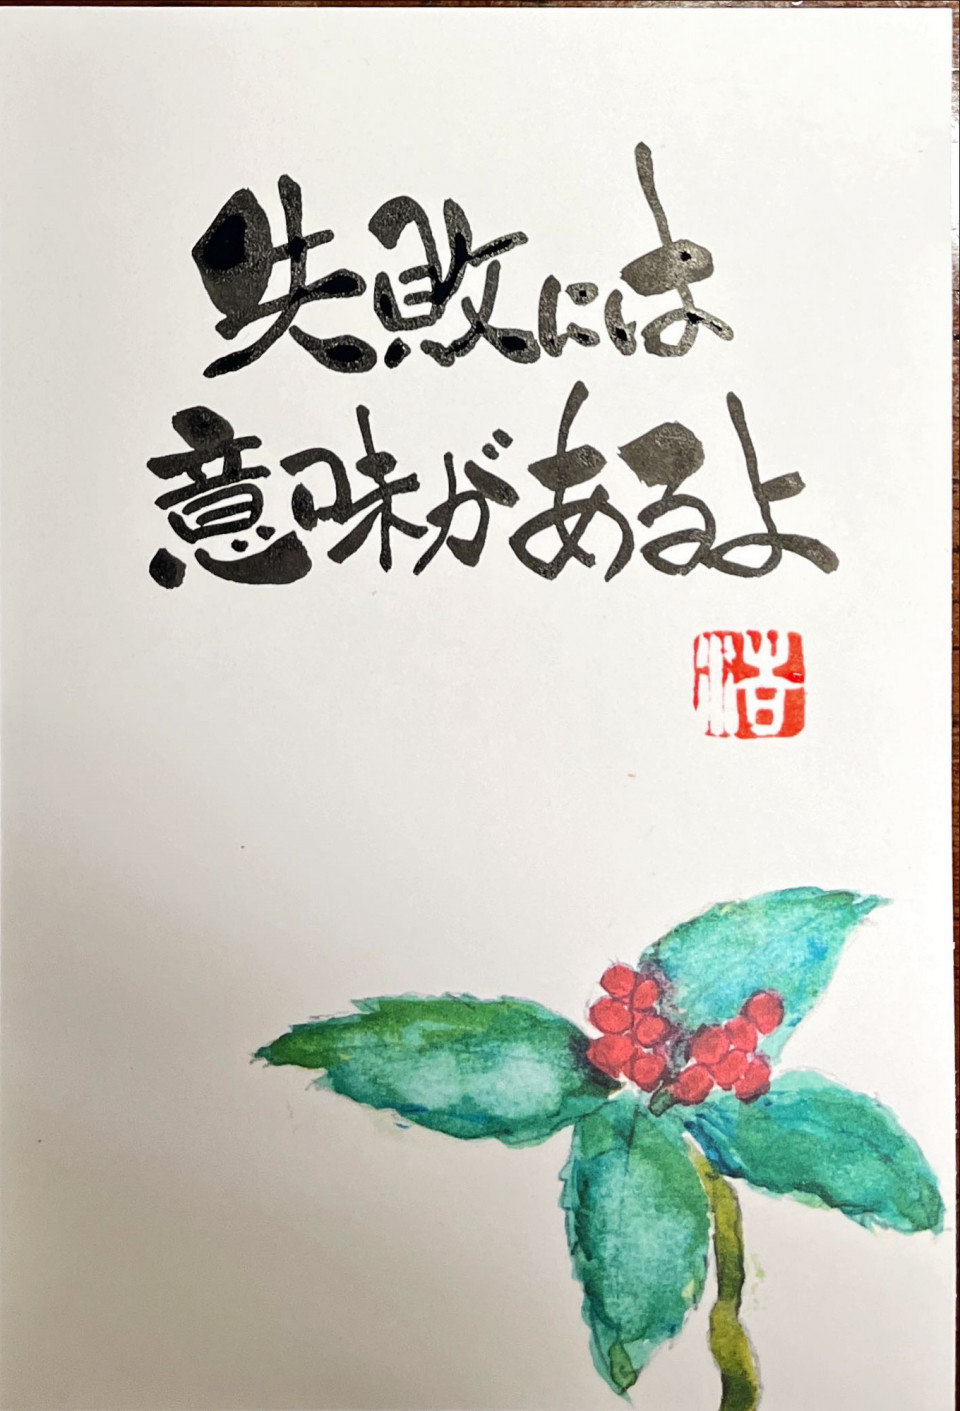 失敗には
意味があるよ